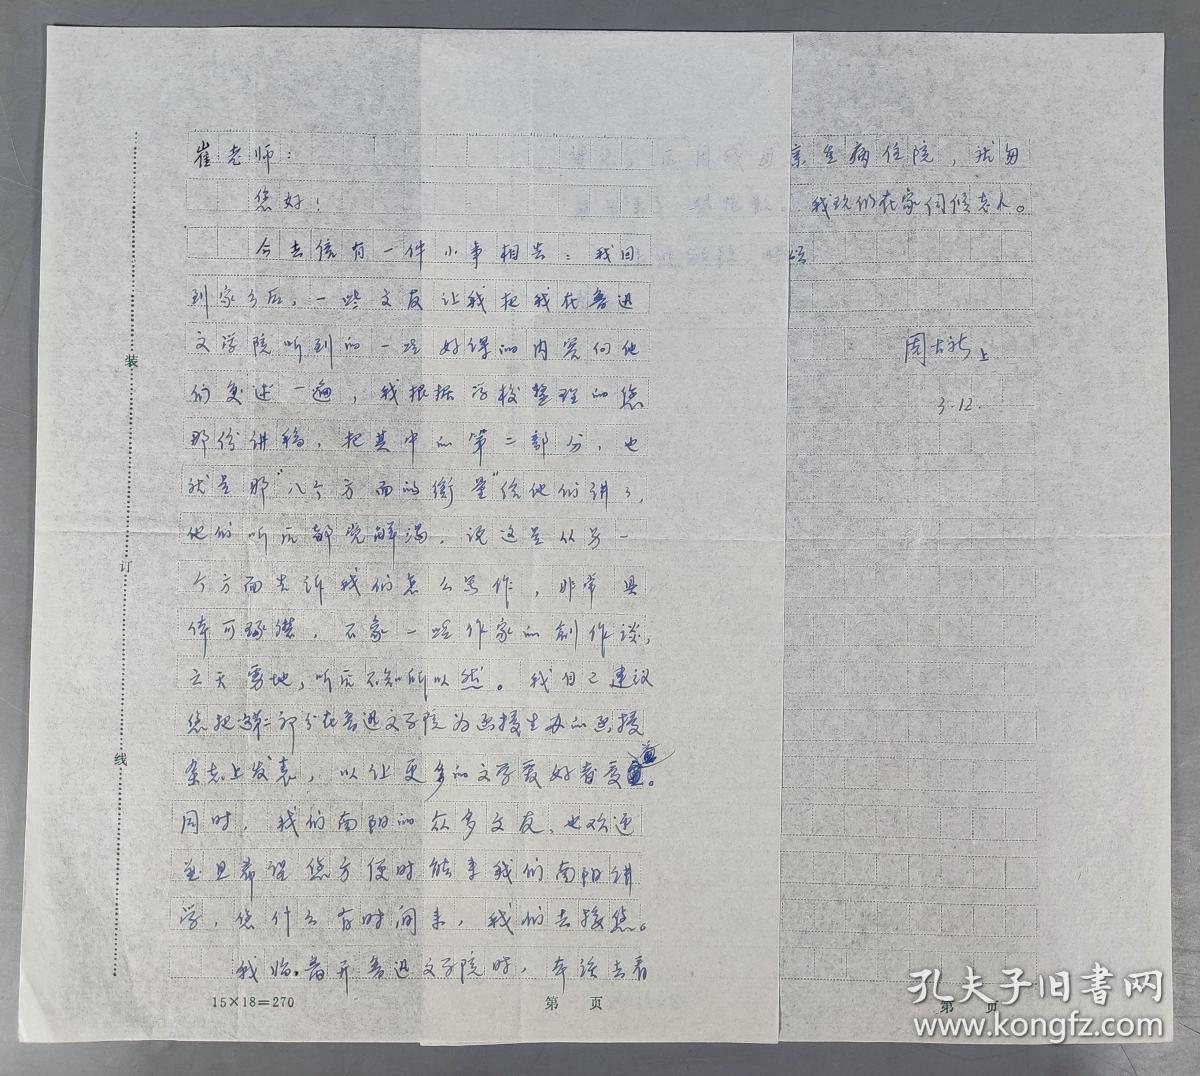 崔老师：
您好！
今去信有一件小事相告：我回
到家乡后，一些文友让我把我在鲁迅
文学院听到的一些好课的内容向他
们复述一遍，我根据学校整理的您
那份讲稿，把其中的第二部分，也
就是那"八个方面的衡量"给他们讲了，
他们听后都觉解渴，说这是从另一
个方面告诉我们怎么写作，非常具
体可琢磨，不象一些作家的创作谈，
云天雾地，听后不知所以然。我自己建议
您把第二部分在鲁迅文学院为函授生办的函授
杂志上发表，以让更多的文学爱好者受益。
同时，我们南阳的众多文友，也欢迎
并且希望您方便时能来我们南阳讲
学，您什么有时间来，我们去接您。
我临离开鲁迅文学院时，本该去看
亲生病住院，就匆
我现仍在家伺候老人。
颂
周大新上
3.12.
装
订
线
15×18=270
第 页
第 页
孔夫子旧书网
www.kongfz.com